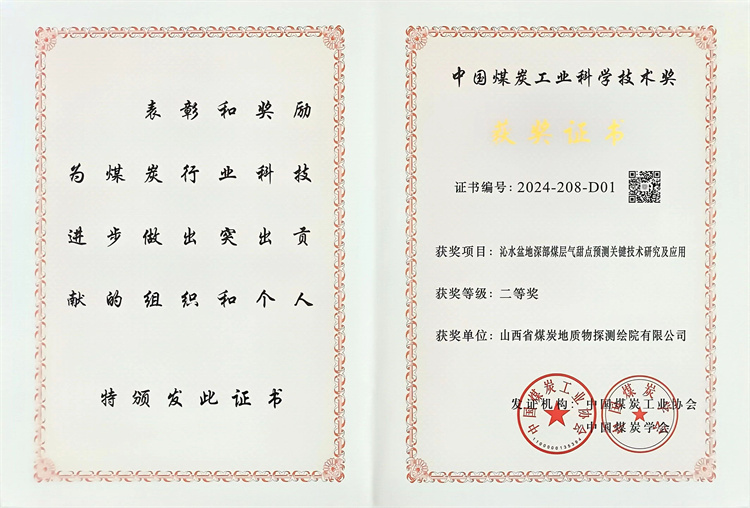 表彰和奖励
为煤炭行业科技
进步做出突出贡
献的组织和个人
特颁发此证书
中国煤炭工业科学技术奖
获奖证书
证书编号：2024-208-D01
获奖项目：沁水盆地深部煤层气甜点预测关键技术研究及应用
获奖等级：二等奖
获奖单位：山西省煤炭地质物探测绘院有限公司
发证机构：中国煤炭工业协会
中国煤炭学会
中国煤炭工业协会
中国煤炭学会